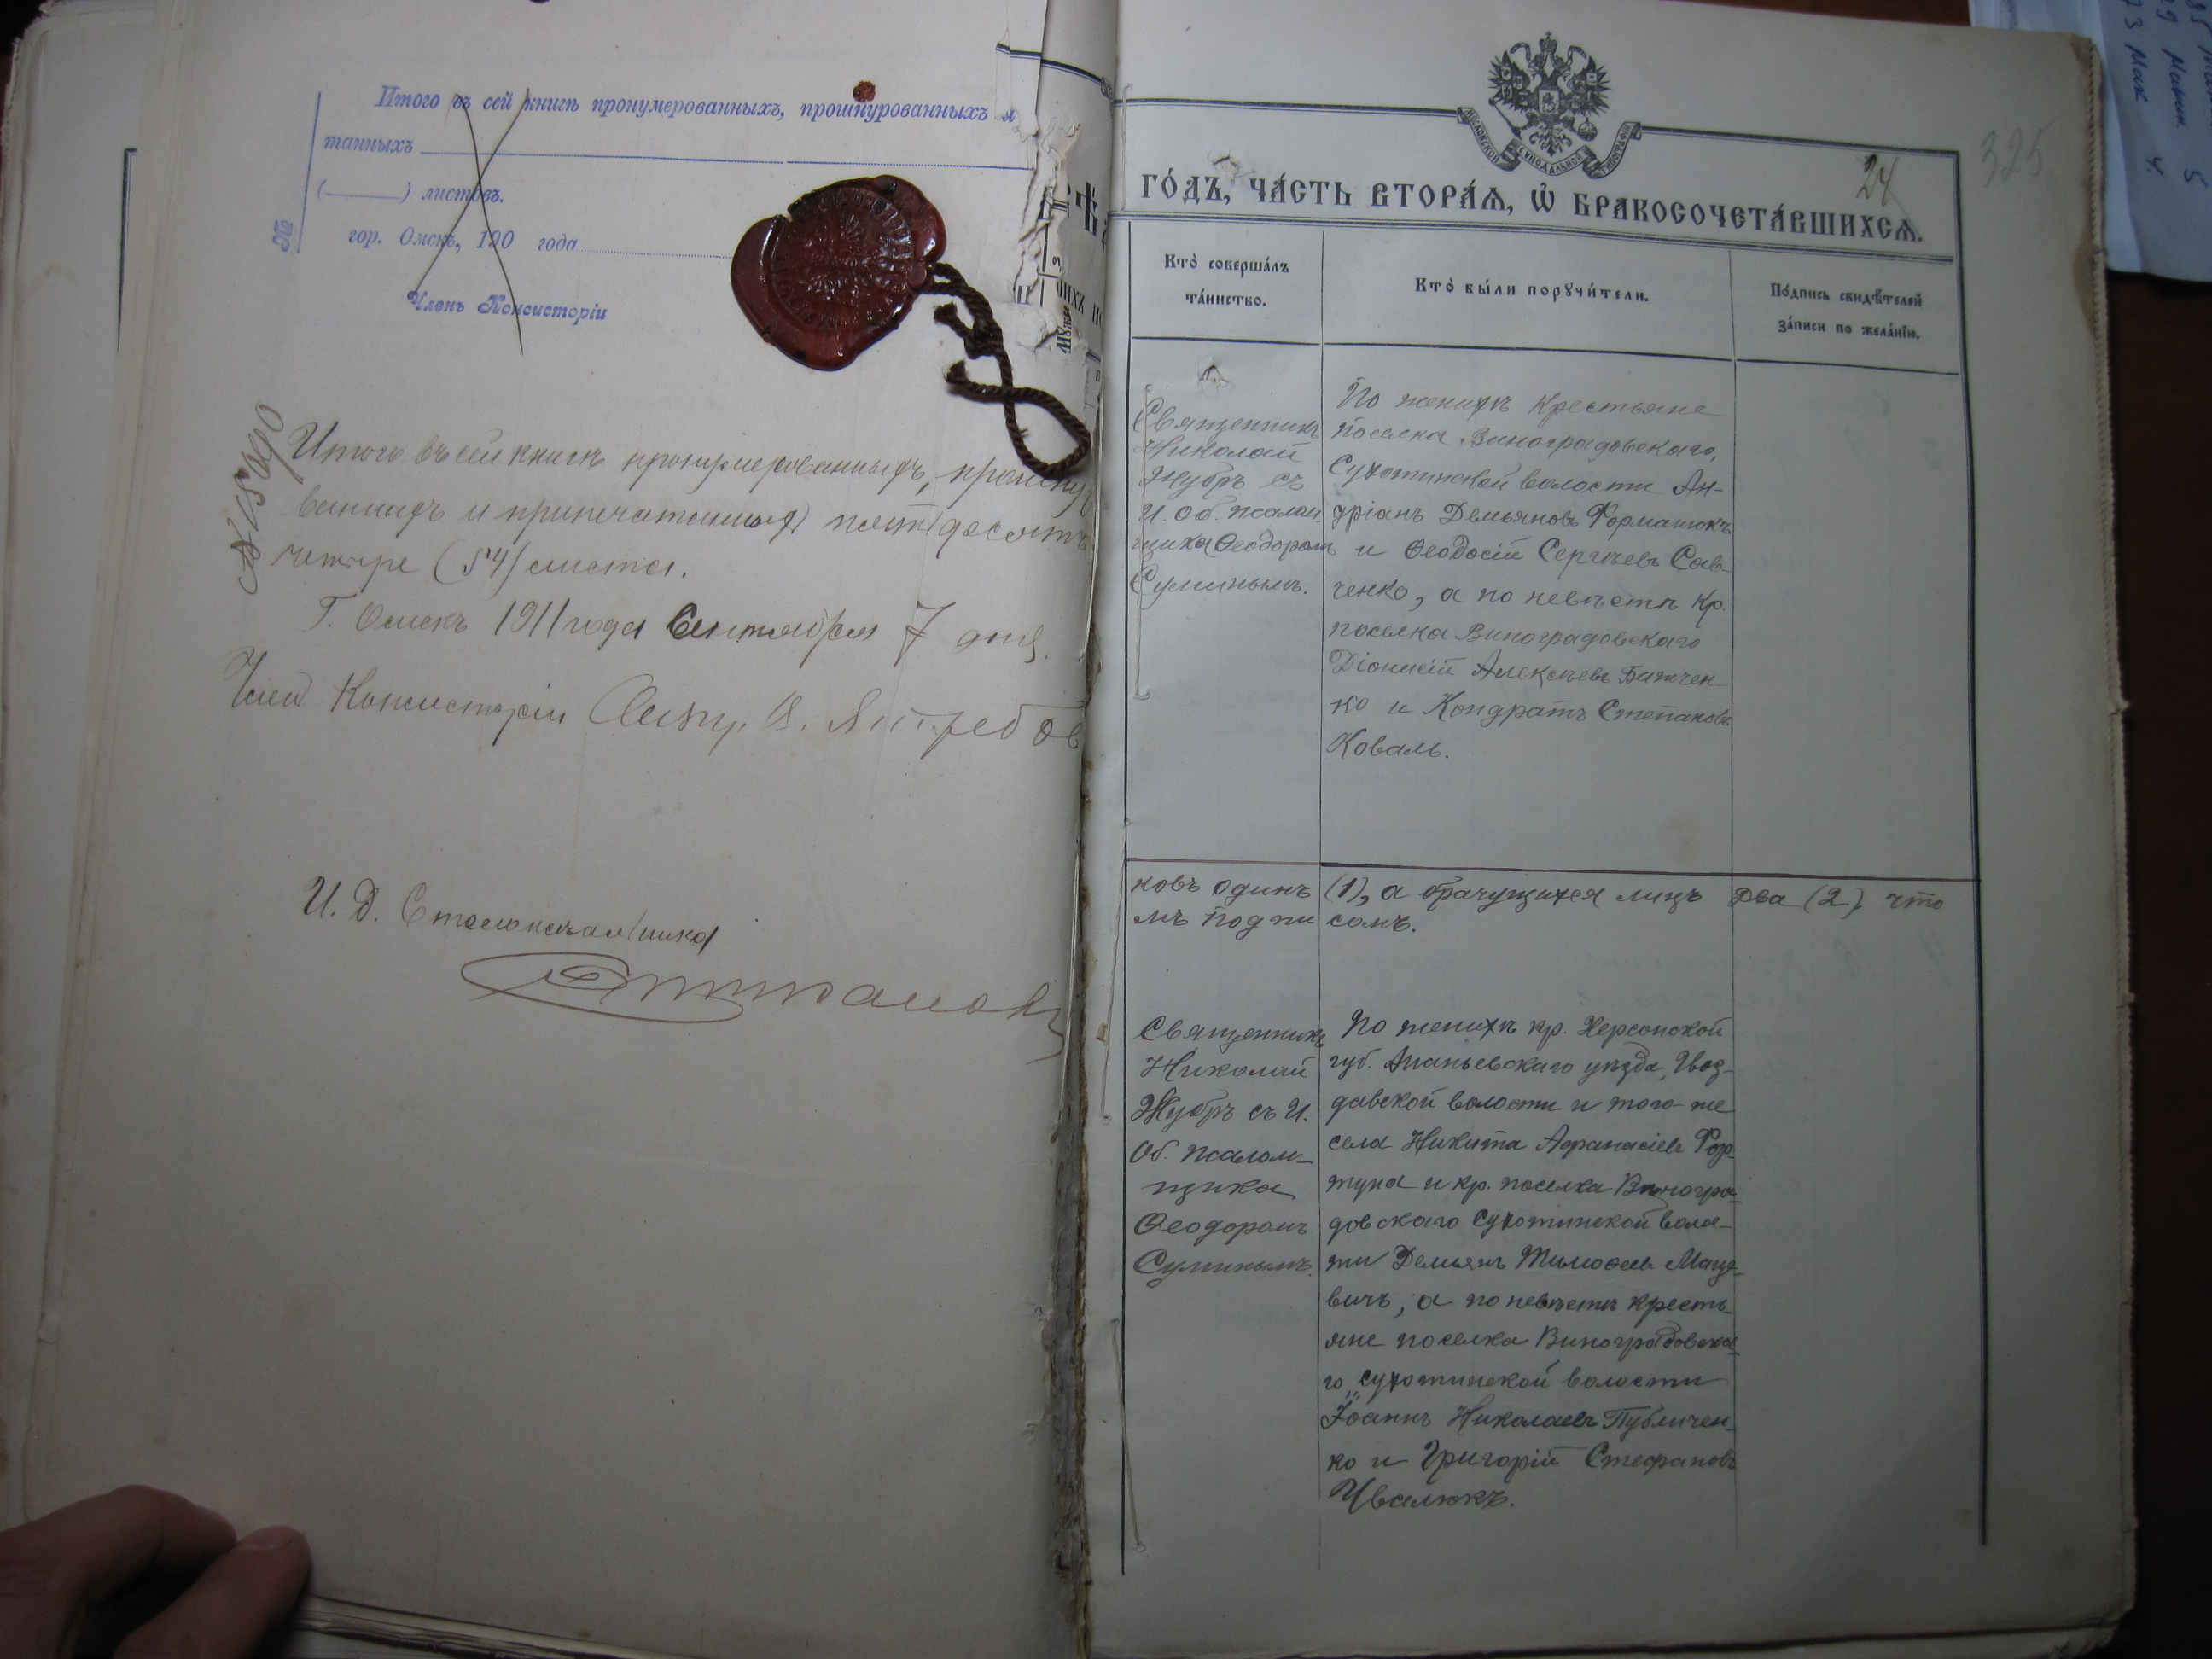 Итого въ сей книгѣ пронумерованныхъ, прошнурованныхъ и
танныхъ
( ) листовъ.
№
гор. Омскъ, 190 года
Членъ Консисторіи
Итого въ сей книгѣ пронумерованныхъ, прошнуро
ванныхъ и припечатанныхъ пятьдесятъ
четыре (54) листа.
Г. Омскъ 1911 года Сентября 7 дня.
Членъ Консисторіи Свящ.
И. Д. Столоначальника
МОСКОВСКОЙ СѴНОДАЛЬНОЙ ТИПОГРАФІИ
24
325
ГО́ДЪ, ЧА́СТЬ ВТОРА́Ѧ, Ѡ҆ БРАКОСОЧЕТА́ВШИХСѦ.
Кто̀ соверша́лъ
та́инство.
Кто̀ бы́ли порꙋчи́тели.
По́дпись свидѣ́телей
за́писи по жела́нїю.
Священникъ
Николай
Жубръ съ
И. об. псалом
щика Ѳеодоромъ
Суминымъ.
По женихѣ крестьяне
поселка Виноградовскаго,
Сухотинской волости Ан-
дріанъ Демьяновъ Форманюкъ
и Ѳеодосій Сергѣевъ Сав-
ченко, а по невѣстѣ кр.
поселка Виноградовскаго
Діонисій Алексѣевъ Бажчен-
ко и Кондратъ Степановъ
Коваль.
ковъ одинъ (1), а брачущихся лицъ два (2), что
мъ подписомъ.
Священникъ
Николай
Жубръ съ И.
Об. псалом-
щика
Ѳеодоромъ
Суминымъ.
По женихѣ кр. Херсонской
губ. Ананьевскаго уѣзда, Гвоз-
давской волости и того-же
села Никита Афанасіевъ Фор-
туна и кр. поселка Виногра-
довскаго Сухотинской волос-
ти Демьянъ Тимоѳеевъ Маце-
вичъ, а по невѣстѣ кресть-
яне поселка Виноградовска-
го, Сухотинской волости
Іоаннъ Николаевъ Публичен-
ко и Григорій Стефановъ
Цвалюкъ.